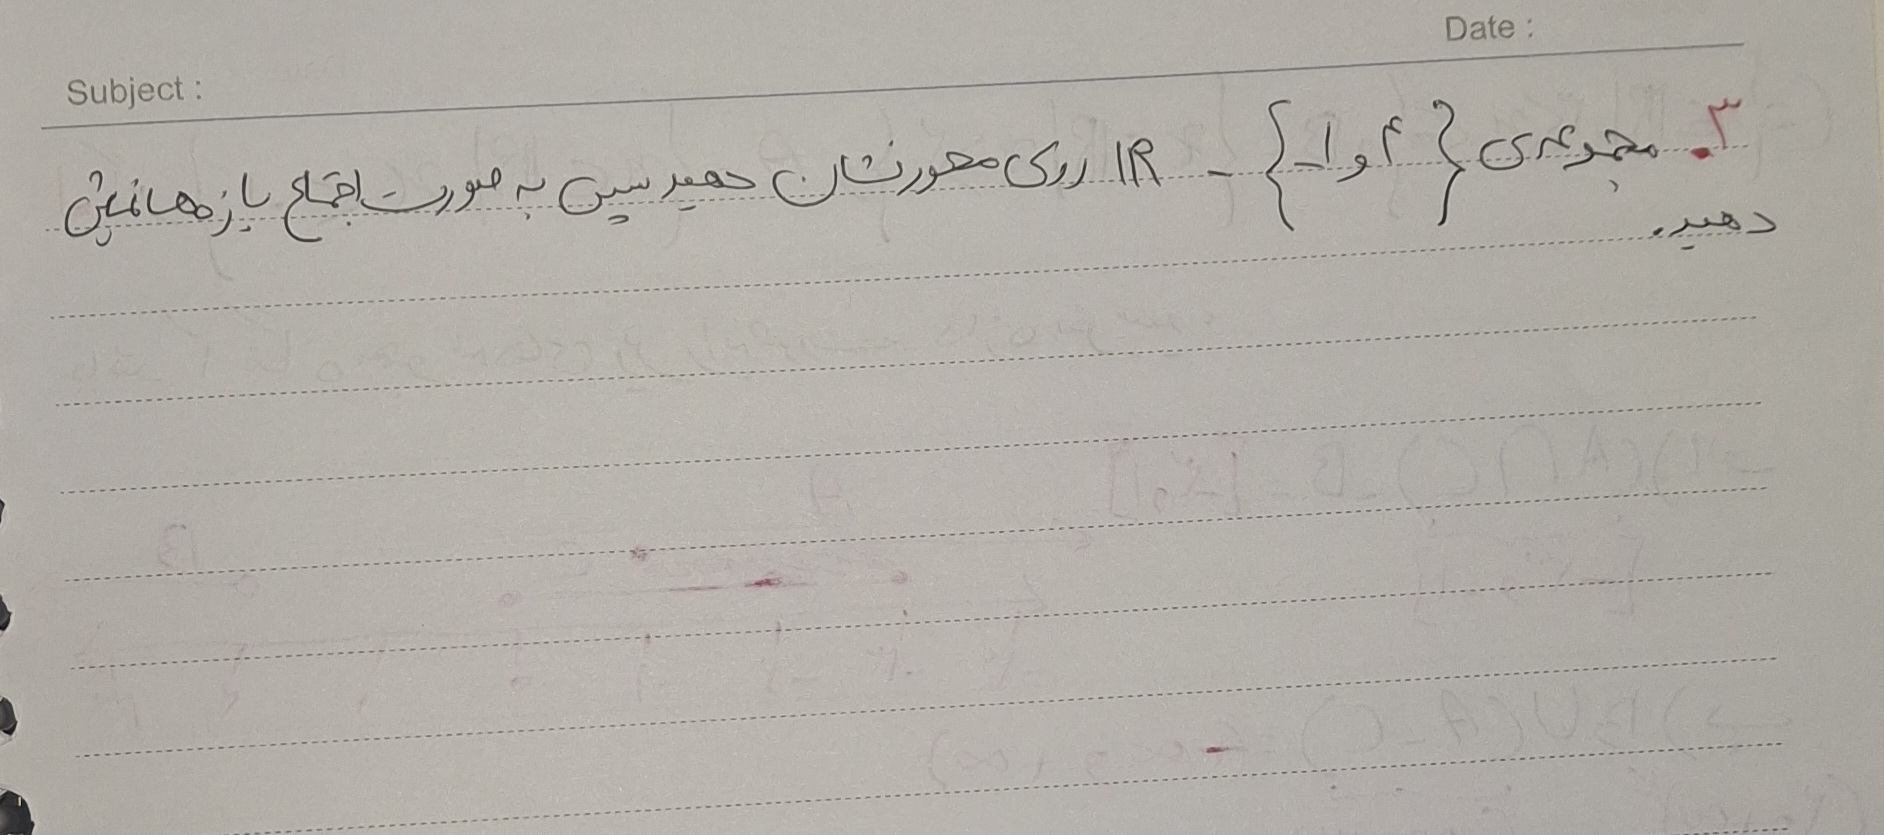 Date :
Subject :
۳. مجموعه‌ی {۴ و ۱-} - IR روی محور نشان دهید سپس به صورت اجتماع بازه‌ها نمایش
دهید.